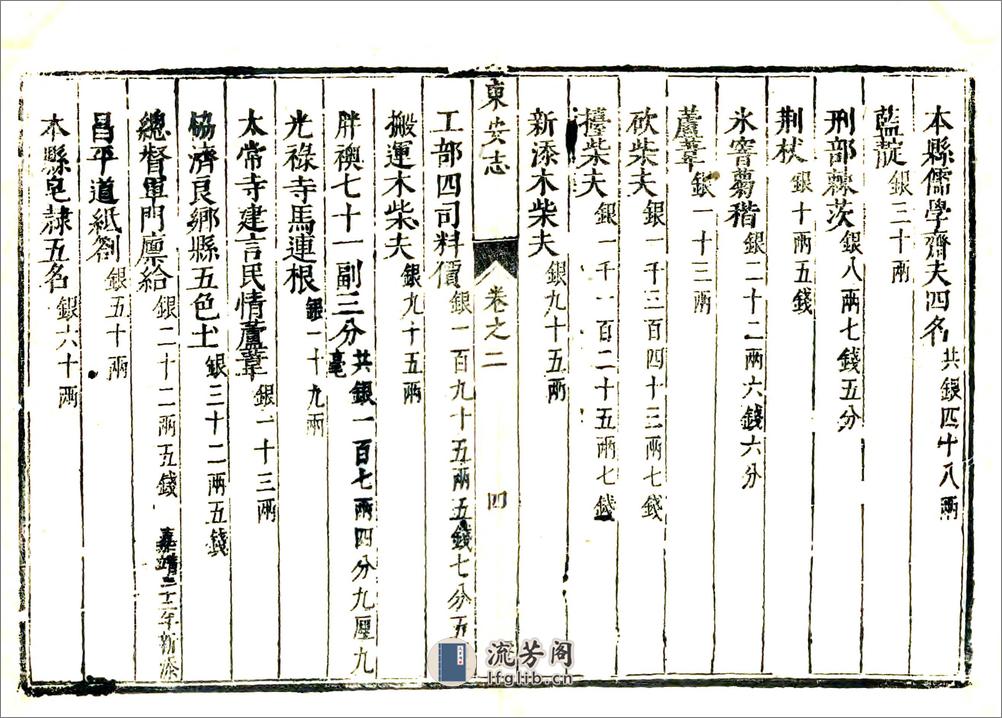 本縣儒學齋夫四名共銀四十八兩
藍靛銀三十兩
刑部棘茨銀八兩七錢五分
荆杖銀十兩五錢
氷窖蒭稭銀二十二兩六錢六分
蘆葦銀一十三兩
砍柴夫銀一千三百四十三兩七錢
擡柴夫銀一千一百二十五兩七錢
新添木柴夫銀九十五兩
東安志
卷之二
四
工部四司料價銀一百九十五兩五錢七分五
搬運木柴夫銀九十五兩
胖襖七十一副三分共銀一百七兩四分九厘九毫
光祿寺馬連根銀一十九兩
太常寺建言民情蘆葦銀一十三兩
協濟良鄉縣五色土銀三十二兩五錢
總督軍門廪給銀二十二兩五錢嘉靖三十二年新添
昌平道紙劄銀五十兩
本縣皂隷五名銀六十兩
流芳阁
lfglib.cn